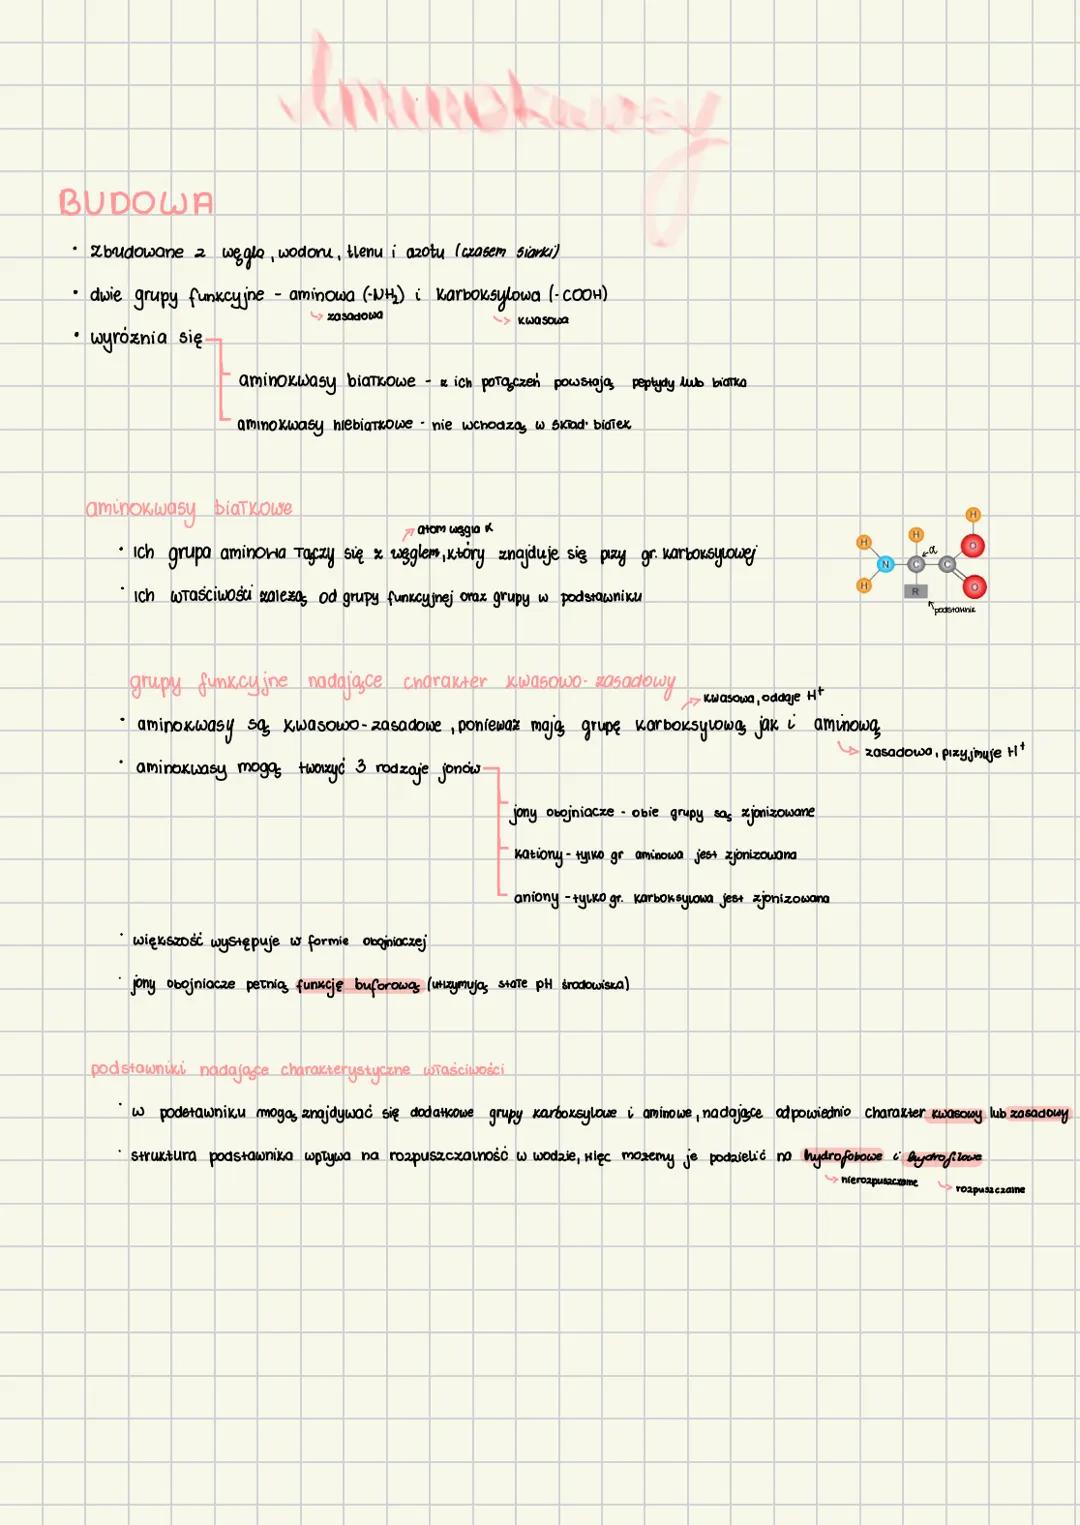 Aminokwasy
BUDOWA
• Zbudowane z węgla, wodoru, tlenu i azotu (czasem siarki)
• dwie grupy funkcyjne - aminowa (-NH₂) i karboksylowa (-COOH)
↳ zasadowa ↳ kwasowa
• wyróżnia się
aminokwasy białkowe - z ich połączeń powstają peptydy lub białka
aminokwasy niebiałkowe - nie wchodzą w skład białek
aminokwasy białkowe
atom węgla α
• Ich grupa aminowa łączy się z węglem, który znajduje się przy gr. karboksylowej
• Ich właściwości zależą od grupy funkcyjnej oraz grupy w podstawniku
H
H H
N C α C O
H R O
podstawnik
grupy funkcyjne nadające charakter kwasowo-zasadowy
kwasowa, oddaje H⁺
• aminokwasy są kwasowo-zasadowe, ponieważ mają grupę karboksylową jak i aminową
↳ zasadowa, przyjmuje H⁺
• aminokwasy mogą tworzyć 3 rodzaje jonów
jony obojniacze - obie grupy są zjonizowane
kationy - tylko gr aminowa jest zjonizowana
aniony - tylko gr. karboksylowa jest zjonizowana
• większość występuje w formie obojniaczej
• jony obojniacze pełnią funkcję buforową (utrzymują stałe pH środowiska)
podstawniki nadające charakterystyczne właściwości
• w podstawniku mogą znajdywać się dodatkowe grupy karboksylowe i aminowe, nadające odpowiednio charakter kwasowy lub zasadowy
• struktura podstawnika wpływa na rozpuszczalność w wodzie, więc możemy je podzielić na hydrofobowe i hydrofilowe
↳ nierozpuszczalne ↳ rozpuszczalne